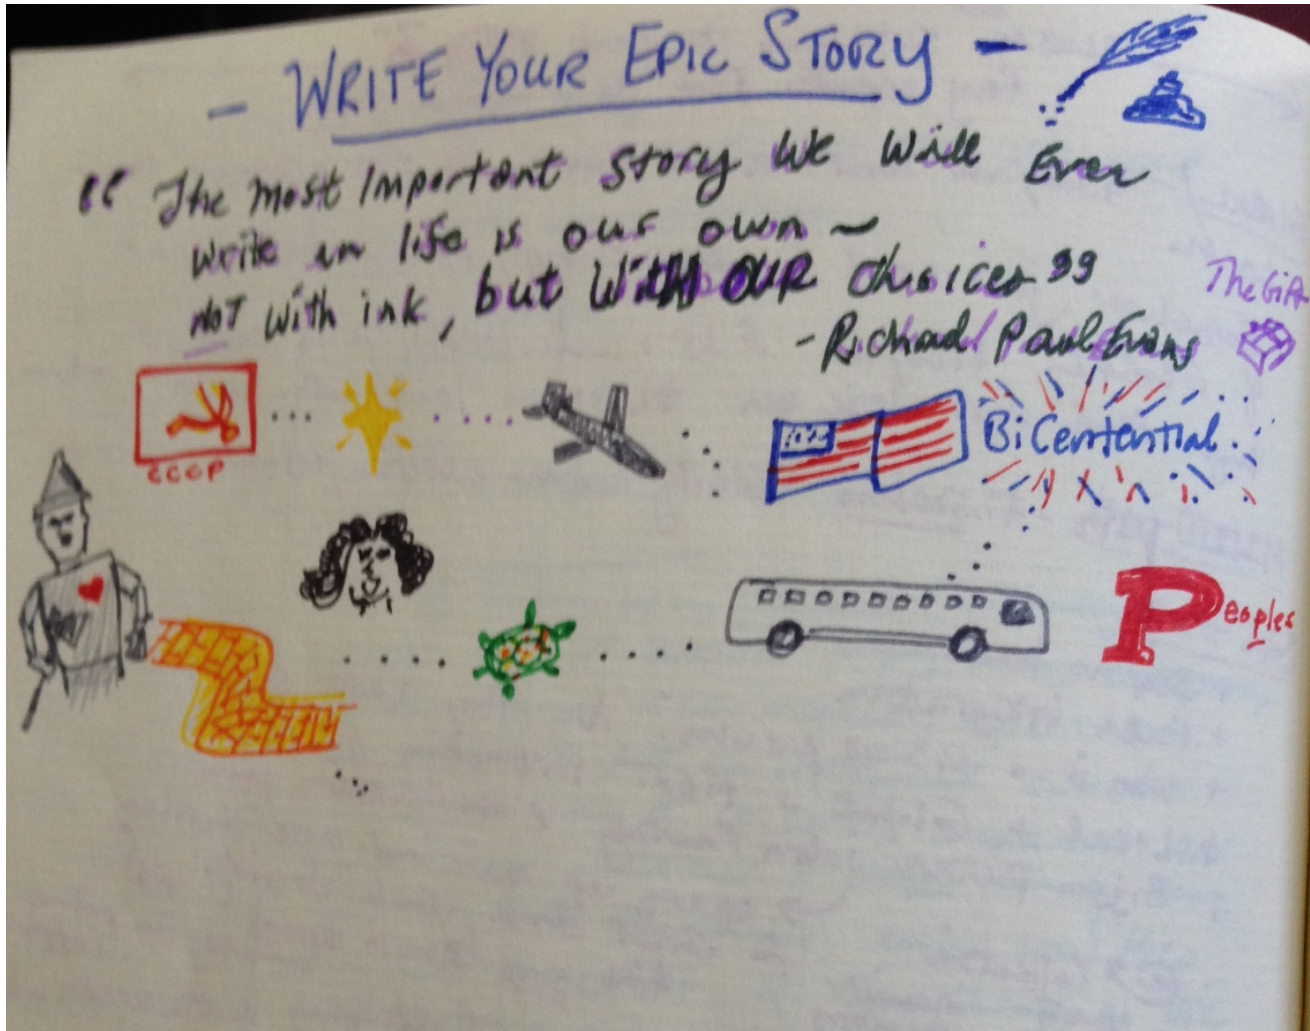 - WRITE YOUR EPIC STORY -
“ The most Important Story We Will Ever
write in life is our own ~
NOT with ink, but WITH OUR choices ”
The Gift
- Richard Paul Evans
CCCP
BiCentential
Peoples